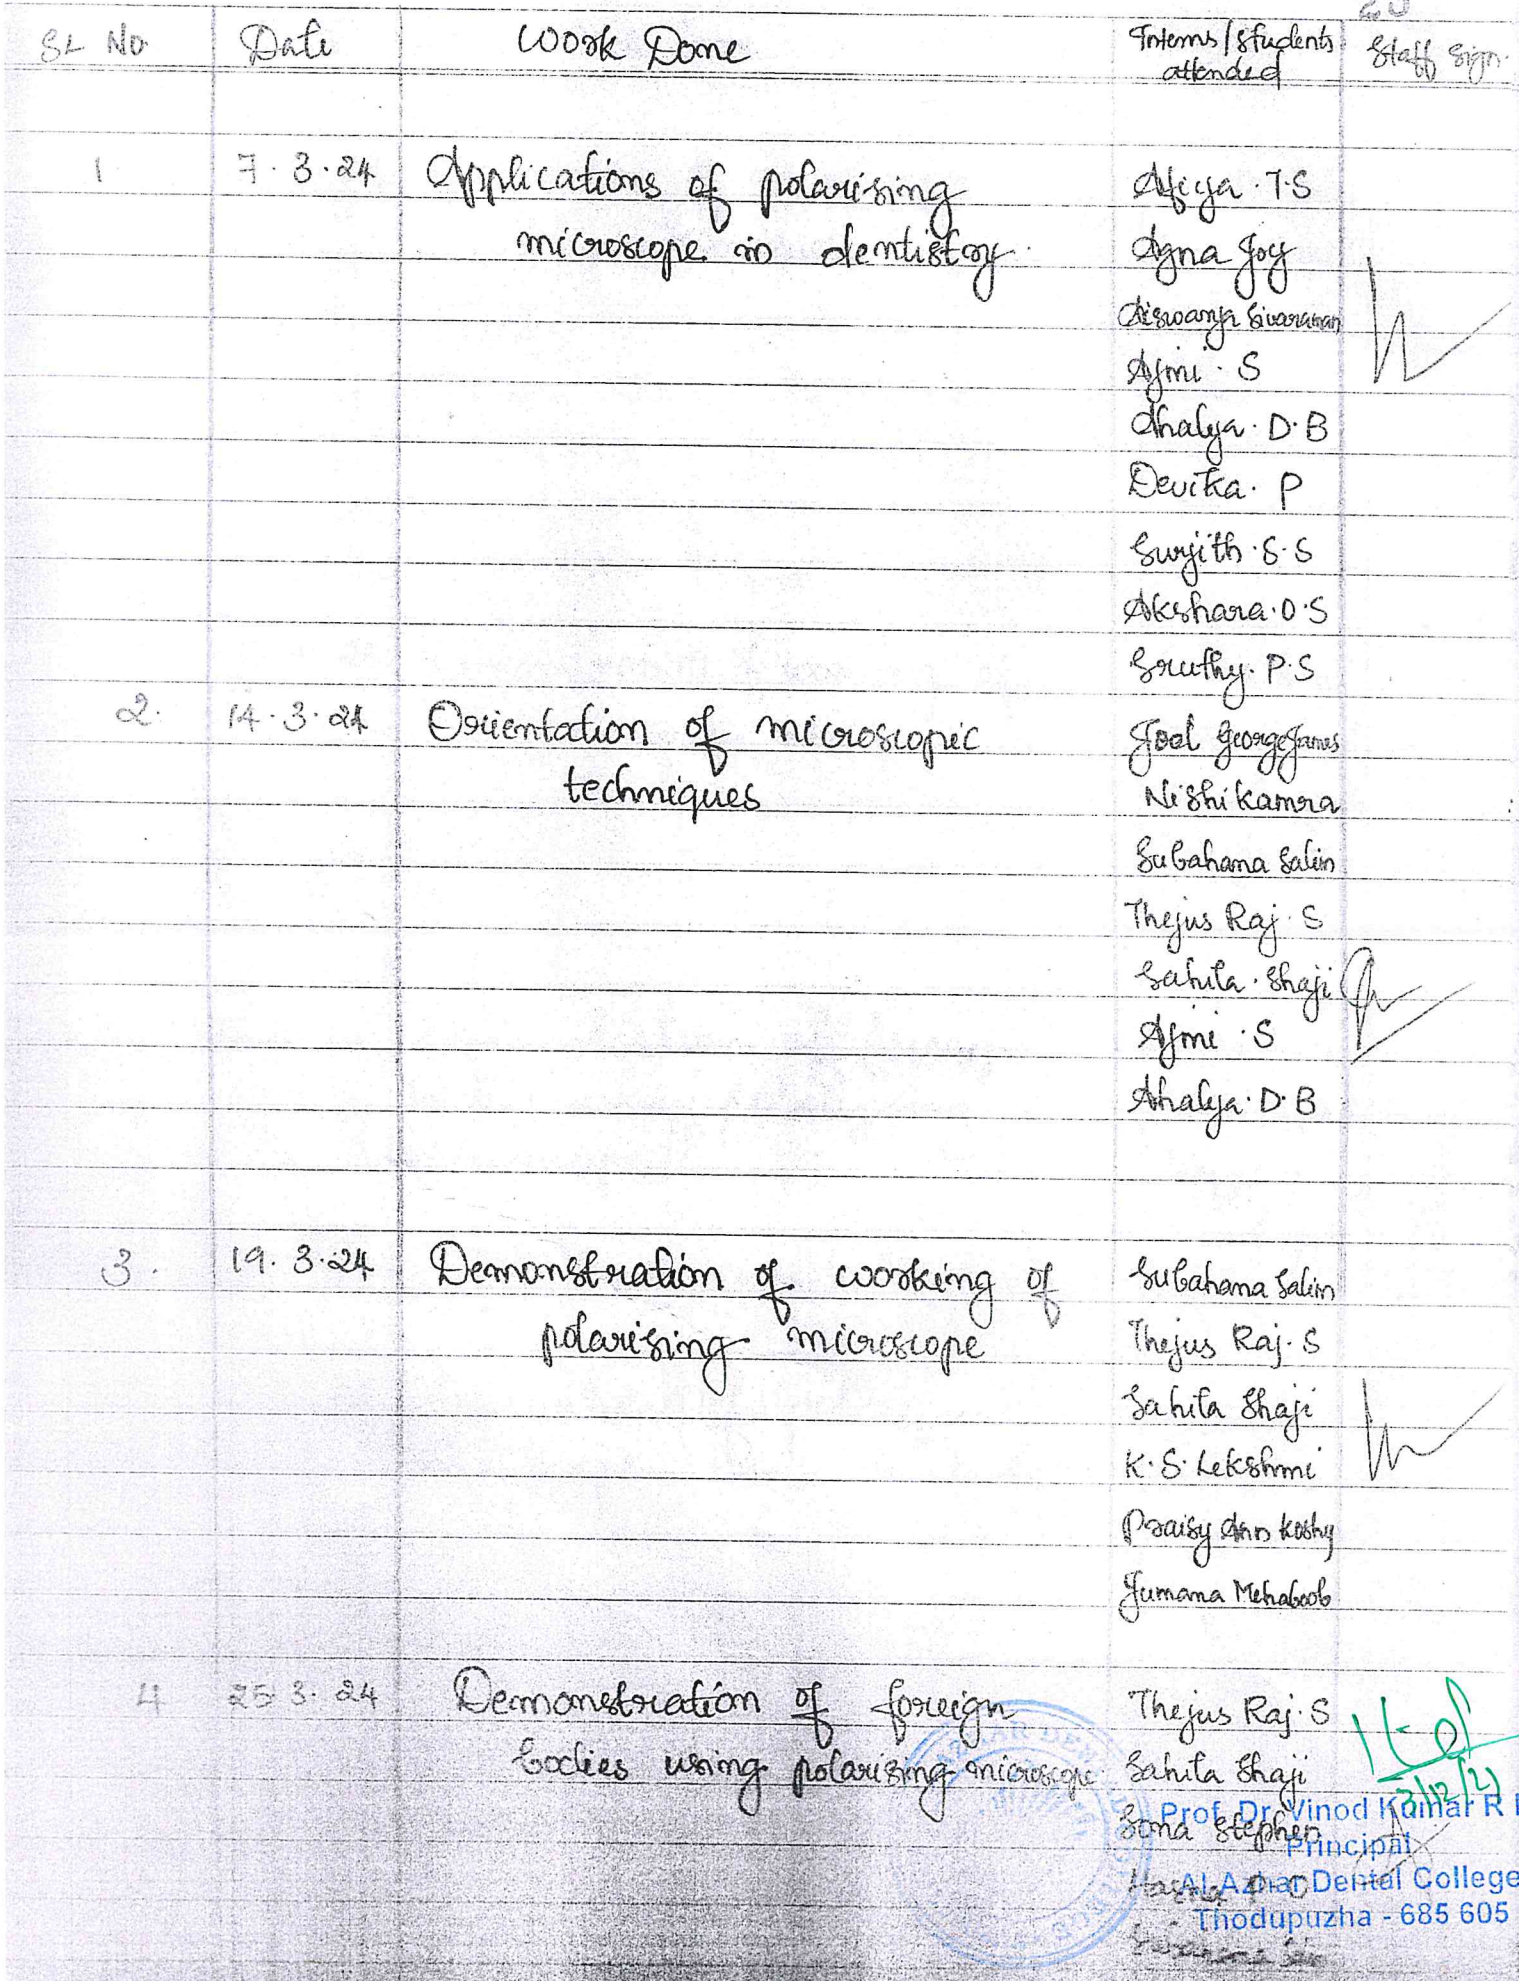 SL No Date Work Done Interns/students Staff Sign.
attended
1 7.3.24 Applications of polarising Afiya.T.S
microscope in dentistry. Agna Joy
Aiswarya Sivaraman
Ajmi.S
Ahalya.D.B
Devika.P
Surjith.S.S
Akshara.O.S
Sruthy.P.S
2. 14.3.24 Orientation of microscopic Joel George James
techniques Nishi kamra
Subahana Salim
Thejus Raj.S
Sahila.Shaji
Ajmi.S
Ahalya.D.B
3. 19.3.24 Demonstration of working of Subahana Salim
polarising microscope Thejus Raj.S
Sahila Shaji
K.S.Lekshmi
Praisy Ann Koshy
Jumana Mehaboob
4 25 3.24 Demonstration of foreign Thejus Raj.S
bodies using polarising microscope Sahila Shaji
Sona Stephen
Prof. Dr. Vinod Kumar R
Principal
Al-Azhar Dental College
Thodupuzha - 685 605